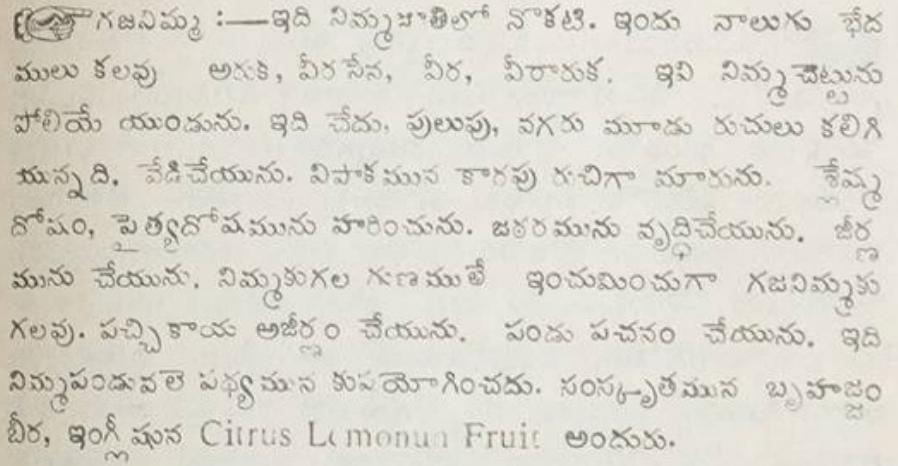 గజనిమ్మ :—ఇది నిమ్మజాతిలో నొకటి. ఇందు నాలుగు భేద
ములు కలవు అరుక, వీరసేన, వీర, వీరారుక. ఇవి నిమ్మచెట్టును
పోలియే యుండును. ఇది చేదు, పులుపు, వగరు మూడు రుచులు కలిగి
యున్నది. వేడిచేయును. విపాకమున కారపు రుచిగా మారును. శ్లేమ్మ
దోషం, పైత్యదోషమును హరించును. జఠరమును వృద్ధిచేయును. జీర్ణ
మును చేయును. నిమ్మకుగల గుణములే ఇంచుమించుగా గజనిమ్మకు
గలవు. పచ్చికాయ అజీర్ణం చేయును. పండు పచనం చేయును. ఇది
నిమ్మపండువలె పథ్యమున కుపయోగించదు. సంస్కృతమున బృహజ్జం
బీర, ఇంగ్లీషున Citrus Lemonun Fruit అందురు.